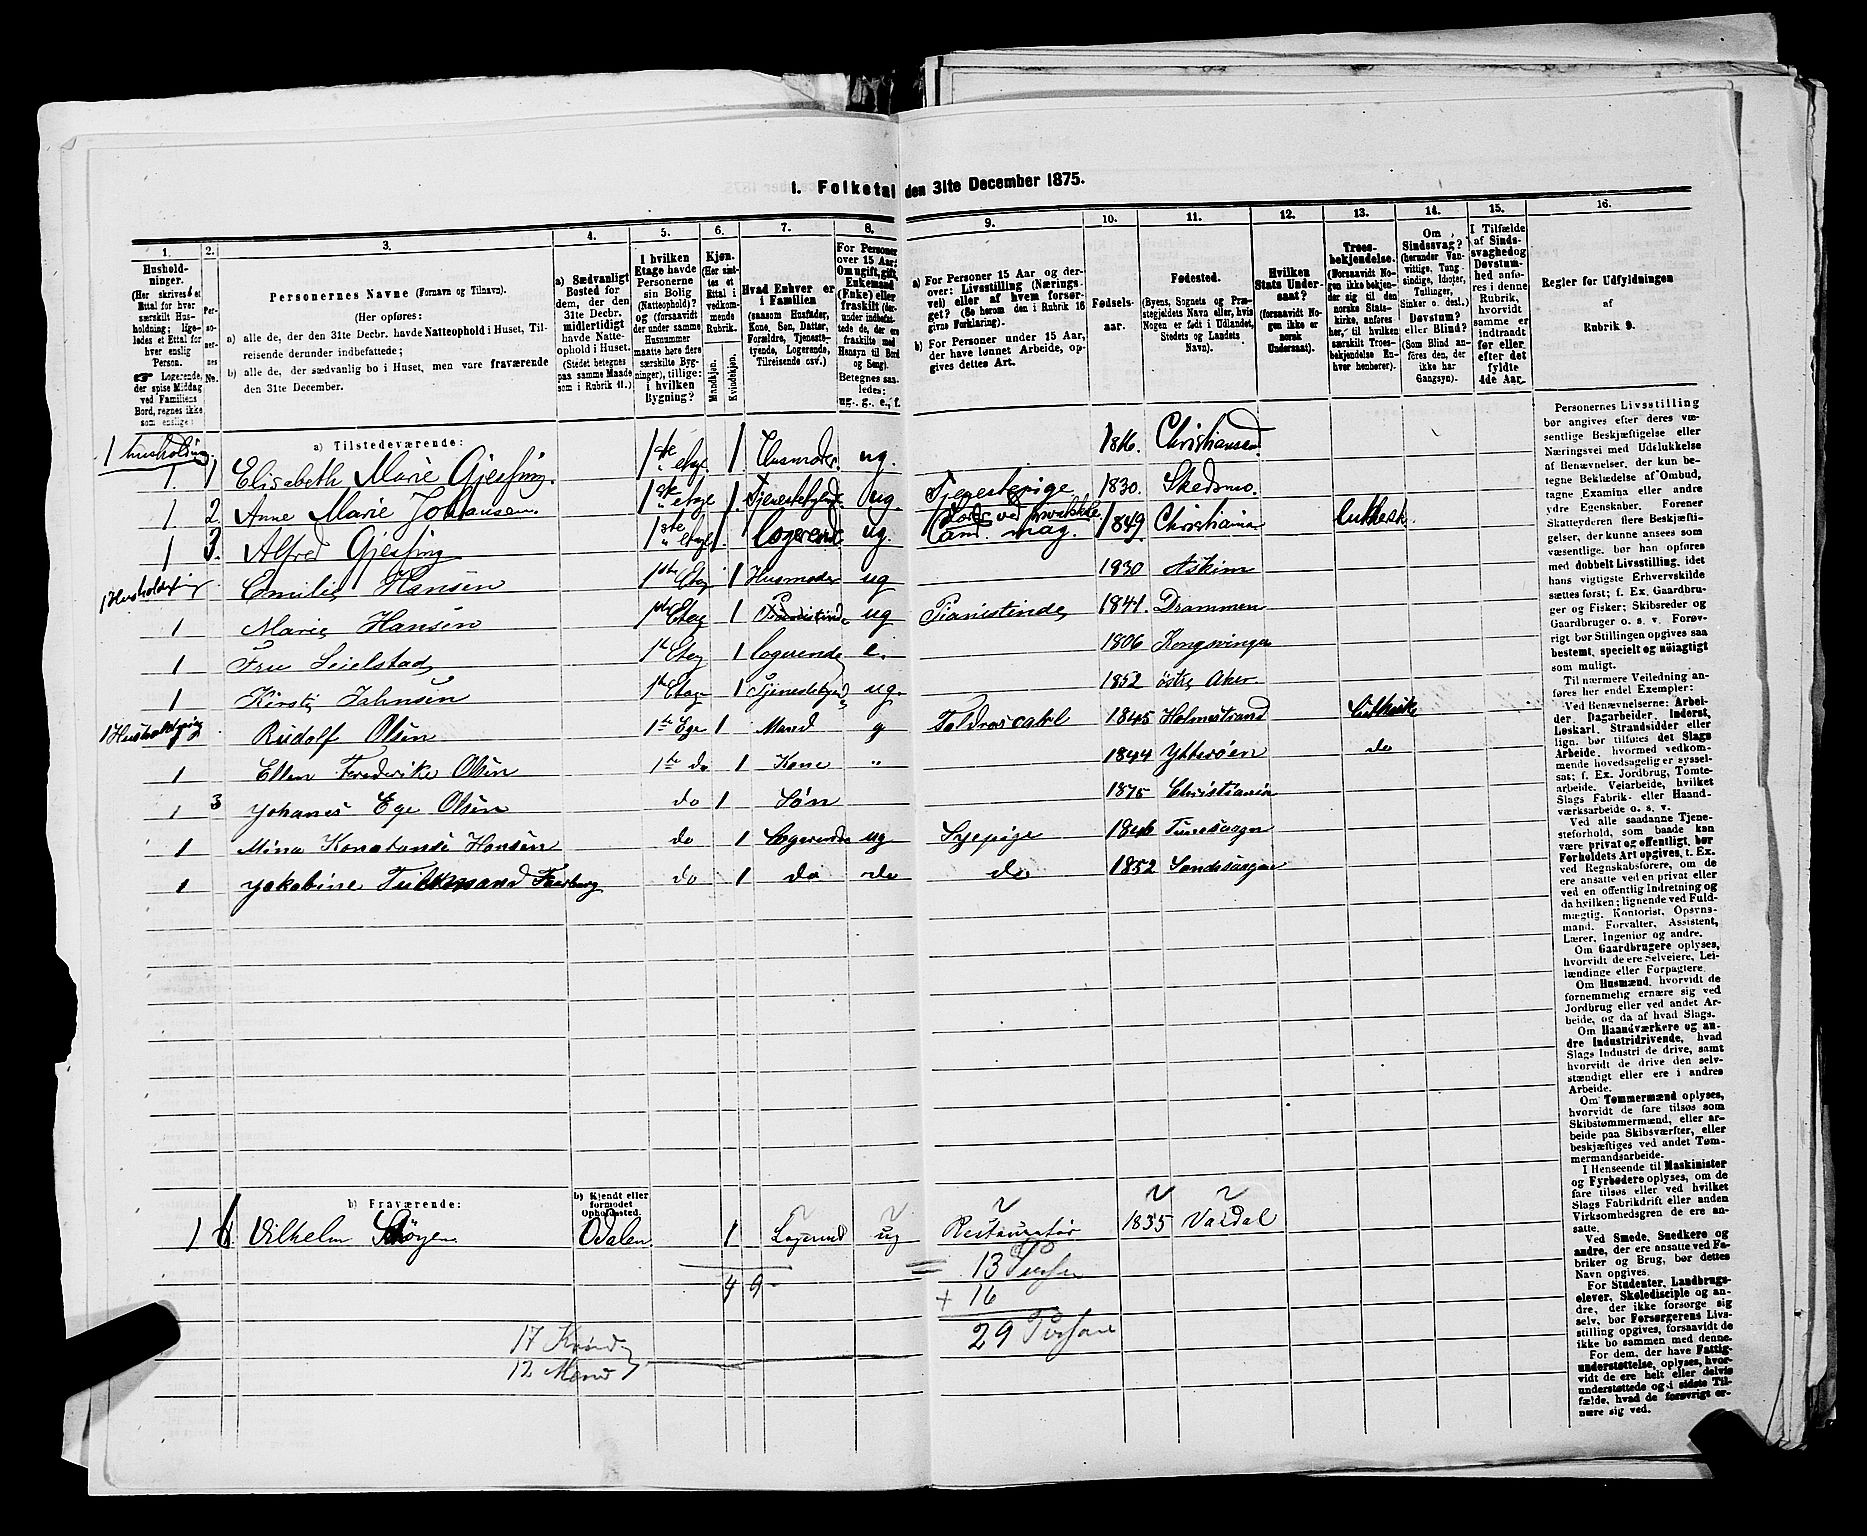 1. Folketal den 31te December 1875.
1. 2. 3. 4. 5. 6. 7. 8. 9. 10. 11. 12. 13. 14. 15. 16.
Hushold-
ninger.
(Her skrives et
Ettal for hver
særskilt Hus-
holdning; lige-
ledes et Ettal for
hver enslig
Person.
Logerende,
der spise Middag
ved Familiens
Bord, regnes ikke
som enslige.
Per-
so-
ner-
nes
No.
Personernes Navne (Fornavn og Tilnavn).
(Her opføres:
a) alle de, der den 31te Decbr. havde Natteophold i Huset, Til-
reisende derunder indbefattede;
b) alle de, der sædvanlig bo i Huset, men vare fraværende
den 31te December.
a) Sædvanligt
Bosted for
dem, der den
31te Decbr.
midlertidigt
havde Natte-
ophold i Huset.
(Stedet betegnes
paa samme Maade
som i Rubrik 11.)
I hvilken
Etage havde
Personerne
sin Bolig
(Natteophold)?
og (forsaavidt
der under samme
Husnummer
maatte høre flere
særskilte Byg-
ninger), tillige:
i hvilken
Bygning?
Kjøn.
(Her sæt-
tes et
Ettal i
vedkom-
mende
Rubrik.
Mandkjøn.
Kvindekjøn.
Hvad Enhver er
i Familien
(saasom Husfader,
Kone, Søn, Datter,
Forældre, Tjeneste-
tyende, Logerende,
Tilreisende osv.)
For Personer
over 15 Aar:
Om ugift, gift,
Enkemand
(Enke) eller
fraskilt (der-
under indbefat-
tede de, der ere
fraskilte med
Hensyn til Bord
og Seng).
Betegnes saa-
ledes:
ug., g., e., f.
a) For Personer 15 Aar og der-
over: Livsstilling (Nærings-
vei) eller af hvem forsør-
get? (Se herom den i Rubrik 16
givne Forklaring).
b) For Personer under 15 Aar,
der have lønnet Arbeide, op-
gives dettes Art.
Fødsels-
aar.
Fødested.
(Byens, Sognets og Præ-
stegjeldets Navn eller, hvis
Nogen er født i Udlandet,
Stedets og Landets
Navn).
Hvilken
Stats Under-
saat?
(forsaavidt No-
gen ikke er
norsk
Undersaat).
Troes-
bekjendelse.
(Forsaavidt No-
gen ikke bekjen-
der sig til den
norske Stats-
kirke, anføres
her, til hvilken
særskilt Troes-
bekjendelse En-
hver henhører).
Om
Sindssvag?
(herunder Van-
vittige, Tung-
sindige, Idioter,
Tullinger,
Sinker o. desl.)
Døvstum?
eller Blind?
(Som Blind an-
føres den, der
ikke har
Gangsyn).
I Tilfælde
af Sinds-
svaghed og
Døvstum-
hed anfø-
res i denne
Rubrik,
hvorvidt
samme er
indtraadt
før eller
efter det
fyldte
4de Aar.
Regler for Udfyldningen
af
Rubrik 9.
a) Tilstedeværende:
1 husholdning
1 1 Elisabeth Marie Gjessing. 1ste etage 1 Husmoder. ug. 1816. Christiansand
1 2. Anne Marie Johansen. 1ste etage 1. Tjenestetyende ug. Tjenestepige 1830. Skedsmo.
1 3. Alfred Gjessing 1ste etage 1. logerende ug. Cand. mag. 1849 Christiania luthersk
1 Husholdning Emilie Hansen 1ste Etag 1 Husmoder ug 1830 Askim
1 Marie Hansen 1ste Etag 1 Pianistinde ug Pianistinde, 1841. Drammen
1 Fru Leielstad, 1ste Etag 1 logerende e. 1806 Kongsvinger
1 Kirsti Jahnsen 1ste Etage 1 Tjenestetyend ug. 1852 østre Aker
1 Husholdning Rudolf Olsen 1ste Ege 1 Mand g Toldroscarl 1845 Holmestrand Lutherske
1 Ellen Frederikke Olsen 1ste do 1 Kone " 1844 Ytterøen do
1 3 Johanes Ege Olsen do 1 Søn 1875 Christiania
1 Mina Konstansi Hansen do 1 Logerende ug Sypige 1846
1 Jakobine do 1 do do do 1852
b) Fraværende:
b) Kjendt eller
formodet
Opholdssted.
1 Vilhelm Støyer. Odalen 1 Logerend ug Restauratør 1835 Værdal
4 9
= 13
+ 16
29
17
12 Mænd
Personernes Livsstilling
bør angives efter deres væ-
sentlige Beskjæftigelse eller
Næringsvei med Udelukkelse
af Benævnelser, der kun be-
tegne Beklædelse af Ombud,
tagne Examina eller andre
ydre Egenskaber. Forener
Skatteyderen flere Beskjæfti-
gelser, der kunne ansees som
væsentlige, bør han opføres
med dobbelt Livsstilling, idet
hans vigtigste Erhvervskilde
sættes først; f. Ex. Gaardbru-
ger og Fisker; Skibsreder og
Gaardbruger o. s. v. Forøv-
rigt bør Stillingen opgives saa
bestemt, specielt og nøiagtigt
som muligt.
Til nærmere Veiledning an-
føres her endel Exempler:
Ved Benævnelserne: Arbei-
der, Dagarbeider, Inderst,
Løskarl, Strandsidder eller
lign. bør tilføies det Slags
Arbeide, hvormed vedkom-
mende hovedsagelig er syssel-
sat; f. Ex. Jordbrug, Tomte-
arbeide, Veiarbeide, hvilket
Slags Fabrik- eller Haand-
værksarbeide o. s. v.
Ved alle saadanne Tjene-
steforhold, som baade kan
være privat og offentligt, bør
Forholdets Art opgives, t. Ex.
ved Regnskabsførere, om de
ere ansatte ved en privat eller
ved en offentlig Indretning og
da hvilken; lignende ved Fuld-
mægtig, Kontorist, Opsyns-
mand, Forvalter, Assistent,
Lærer, Ingeniør og andre.
Om Gaardbrugere oplyses,
hvorvidt de ere Selveiere, Lei-
lændinge eller Forpagtere.
Om Husmænd, hvorvidt de
fornemmelig ernære sig ved
Jordbrug eller ved andet Ar-
beide, og da af hvad Slags.
Om Haandværkere og an-
dre Industridrivende, hvad
Slags Industri de drive, samt
hvorvidt de drive den selv-
stændigt eller ere i andres
Arbeide.
Om Tømmermænd oplyses,
hvorvidt de fare tilsøs som
Skibstømmermænd, eller ar-
beide paa Skibsværfter, eller
beskjæftiges ved andet Tøm-
mermandsarbeide.
I Henseende til Maskinister
og Fyrbødere oplyses, om de
fare tilsøs eller ved hvilket
Slags Fabrikdrift eller anden
Virksomhedsgren de ere an-
satte.
Ved Smede, Snedkere og
andre, der ere ansatte ved Fa-
briker og Brug, bør dettes
Navn opgives.
For Studenter, Landbrugs-
elever, Skoledisciple og an-
dre, der ikke forsørge sig
selv, bør Forsørgerens Livs-
stilling opgives, forsaavidt de
ikke bo sammen med denne.
For dem, der have Fattig-
understøttelse, oplyses, hvor-
vidt de ere helt eller delvis
understøttede og i sidste Til-
fælde, hvad de forøvrigt er-
nære sig ved.